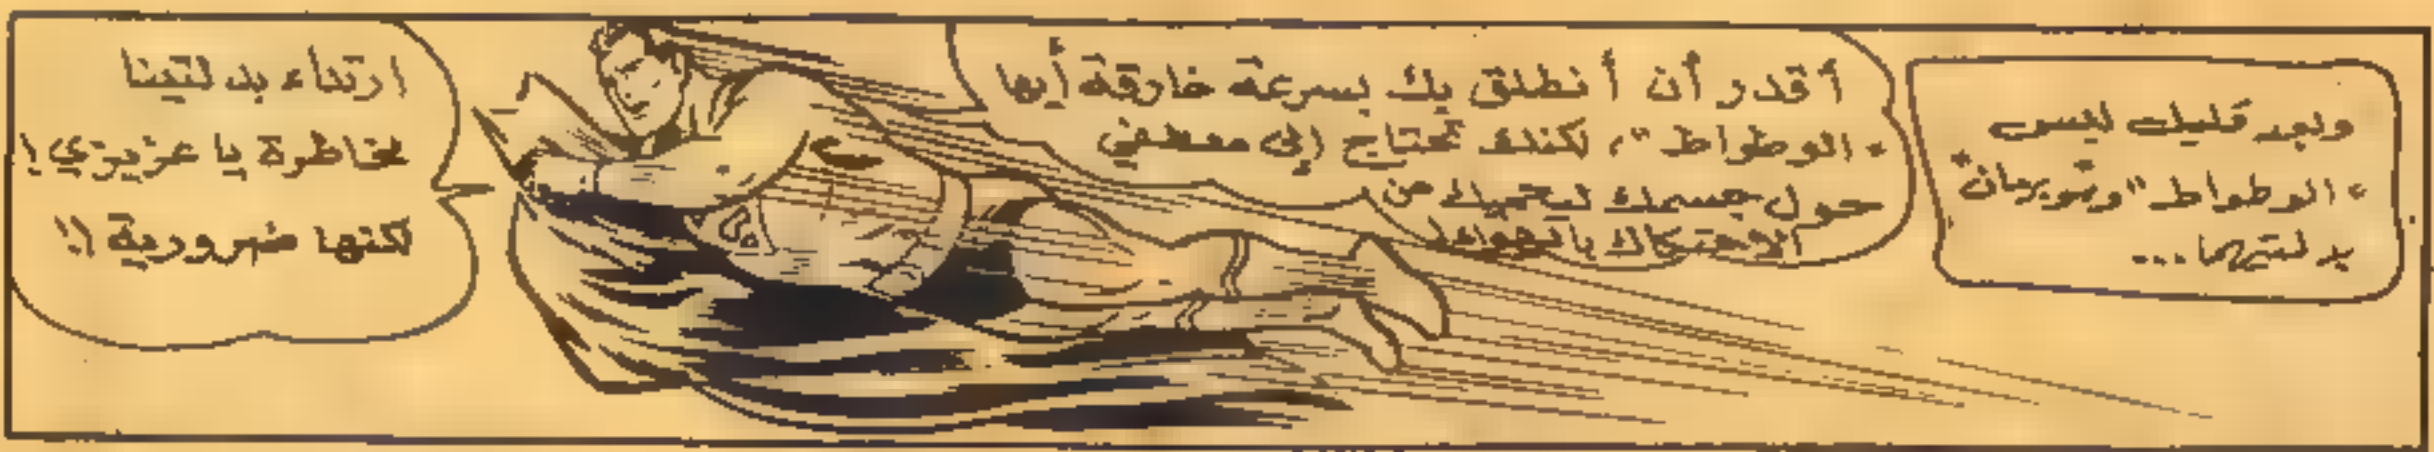 وبعد قليل لبس
"الوطواط" و"سوبرمان"
بدلتيهما...
أقدر أن أنطلق بك بسرعة خارقة أيها
"الوطواط"، لكنك تحتاج إلى معطفي
حول جسمك ليحميك من
الاحتكاك بالهواء!
ارتداء بدلتينا
مخاطرة يا عزيزي!
لكنها ضرورية!!